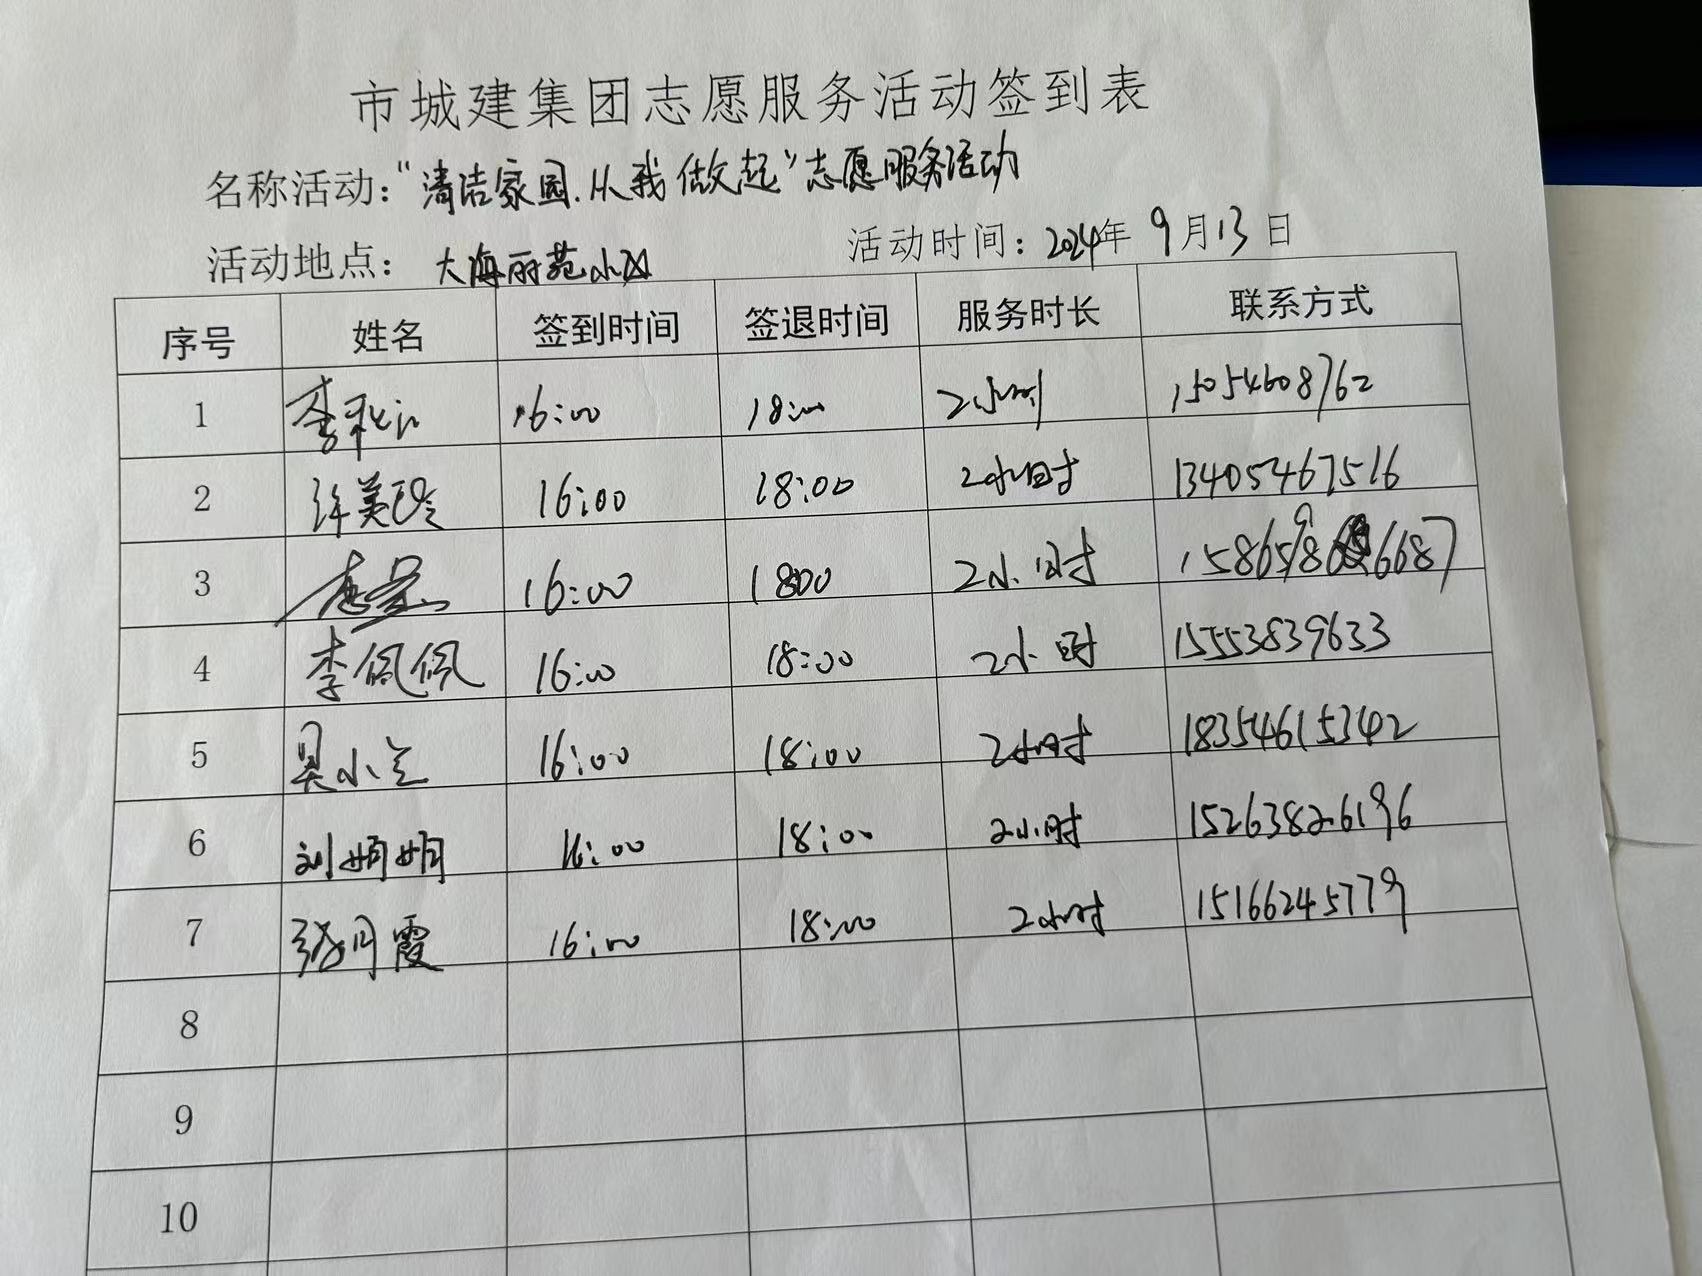 市城建集团志愿服务活动签到表
名称活动：“清洁家园.从我做起”志愿服务活动
活动地点： 大海丽苑小区 活动时间：2024年 9月13日
序号 姓名 签到时间 签退时间 服务时长 联系方式
1 李 16:00 18:00 2小时 15054608762
2 许美玲 16:00 18:00 2小时 13405467516
3 16:00 1800 2小时
4 李佩佩 16:00 18:00 2小时 15553839633
5 吴小兰 16:00 18:00 2小时 18354615342
6 刘娟娟 16:00 18:00 2小时 15263826196
7 张月霞 16:00 18:00 2小时 15166245779
8
9
10